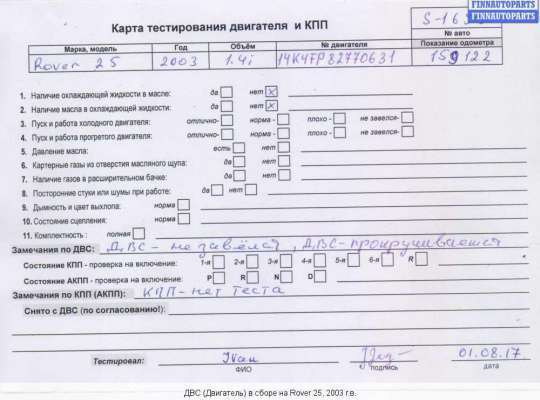 FINNAUTOPARTS
FINNAUTOPARTS
Карта тестирования двигателя и КПП
№ авто
Марка, модель Год Объём № двигателя Показание одометра
Rover 25 2003 1.4i 14K4FP82770631 159122
1. Наличие охлаждающей жидкости в масле: да нет x
2. Наличие масла в охлаждающей жидкости: да нет x
3. Пуск и работа холодного двигателя: отлично- норма - плохо - не завелся-
4. Пуск и работа прогретого двигателя: отлично- норма - плохо - не завелся-
5. Давление масла: есть нет
6. Картерные газы из отверстия масляного щупа: да нет
7. Наличие газов в расширительном бачке: да нет
8. Посторонние стуки или шумы при работе: да нет
9. Дымность и цвет выхлопа: норма
10. Состояние сцепления: норма
11. Комплектность : полная
Замечания по ДВС: ДВС - не завёлся, ДВС - прокручивается
Состояние КПП - проверка на включение: 1-я 2-я 3-я 4-я 5-я 6-я R
Состояние АКПП - проверка на включение: P R N D
Замечания по КПП (АКПП): КПП - нет теста
Снято с ДВС (по согласованию!):
Тестировал: Ivan 01.08.17
ФИО подпись дата
ДВС (Двигатель) в сборе на Rover 25, 2003 г.в.